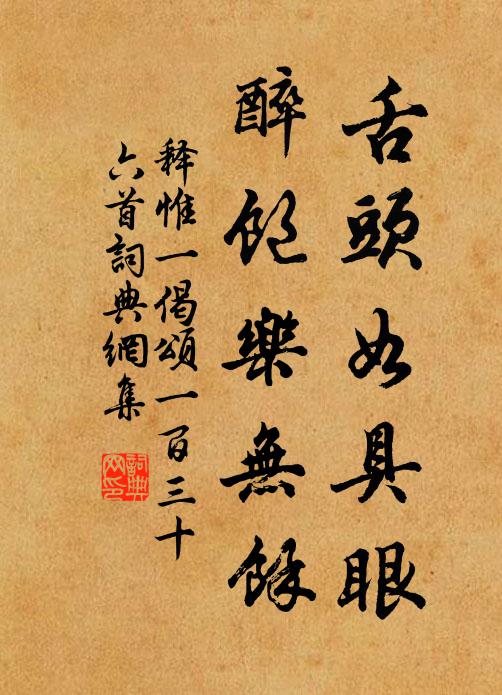 舌頭如具眼
醉飽樂無餘
釋惟一偈頌一百三十
六首詞典網集
詞典
网印